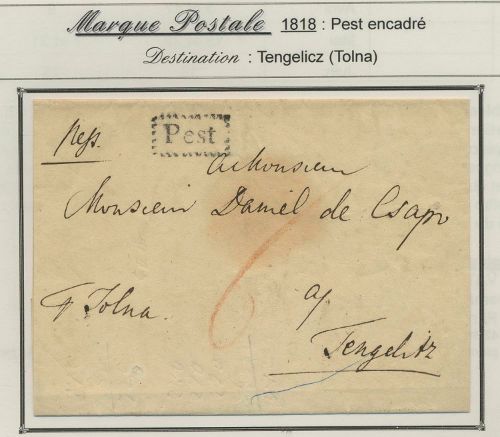 Marque Postale 1818 : Pest encadré
Destination : Tengelicz (Tolna)
Pest
A Monsieur
Monsieur Daniel de Csapo
Tolna.
Tengelitz